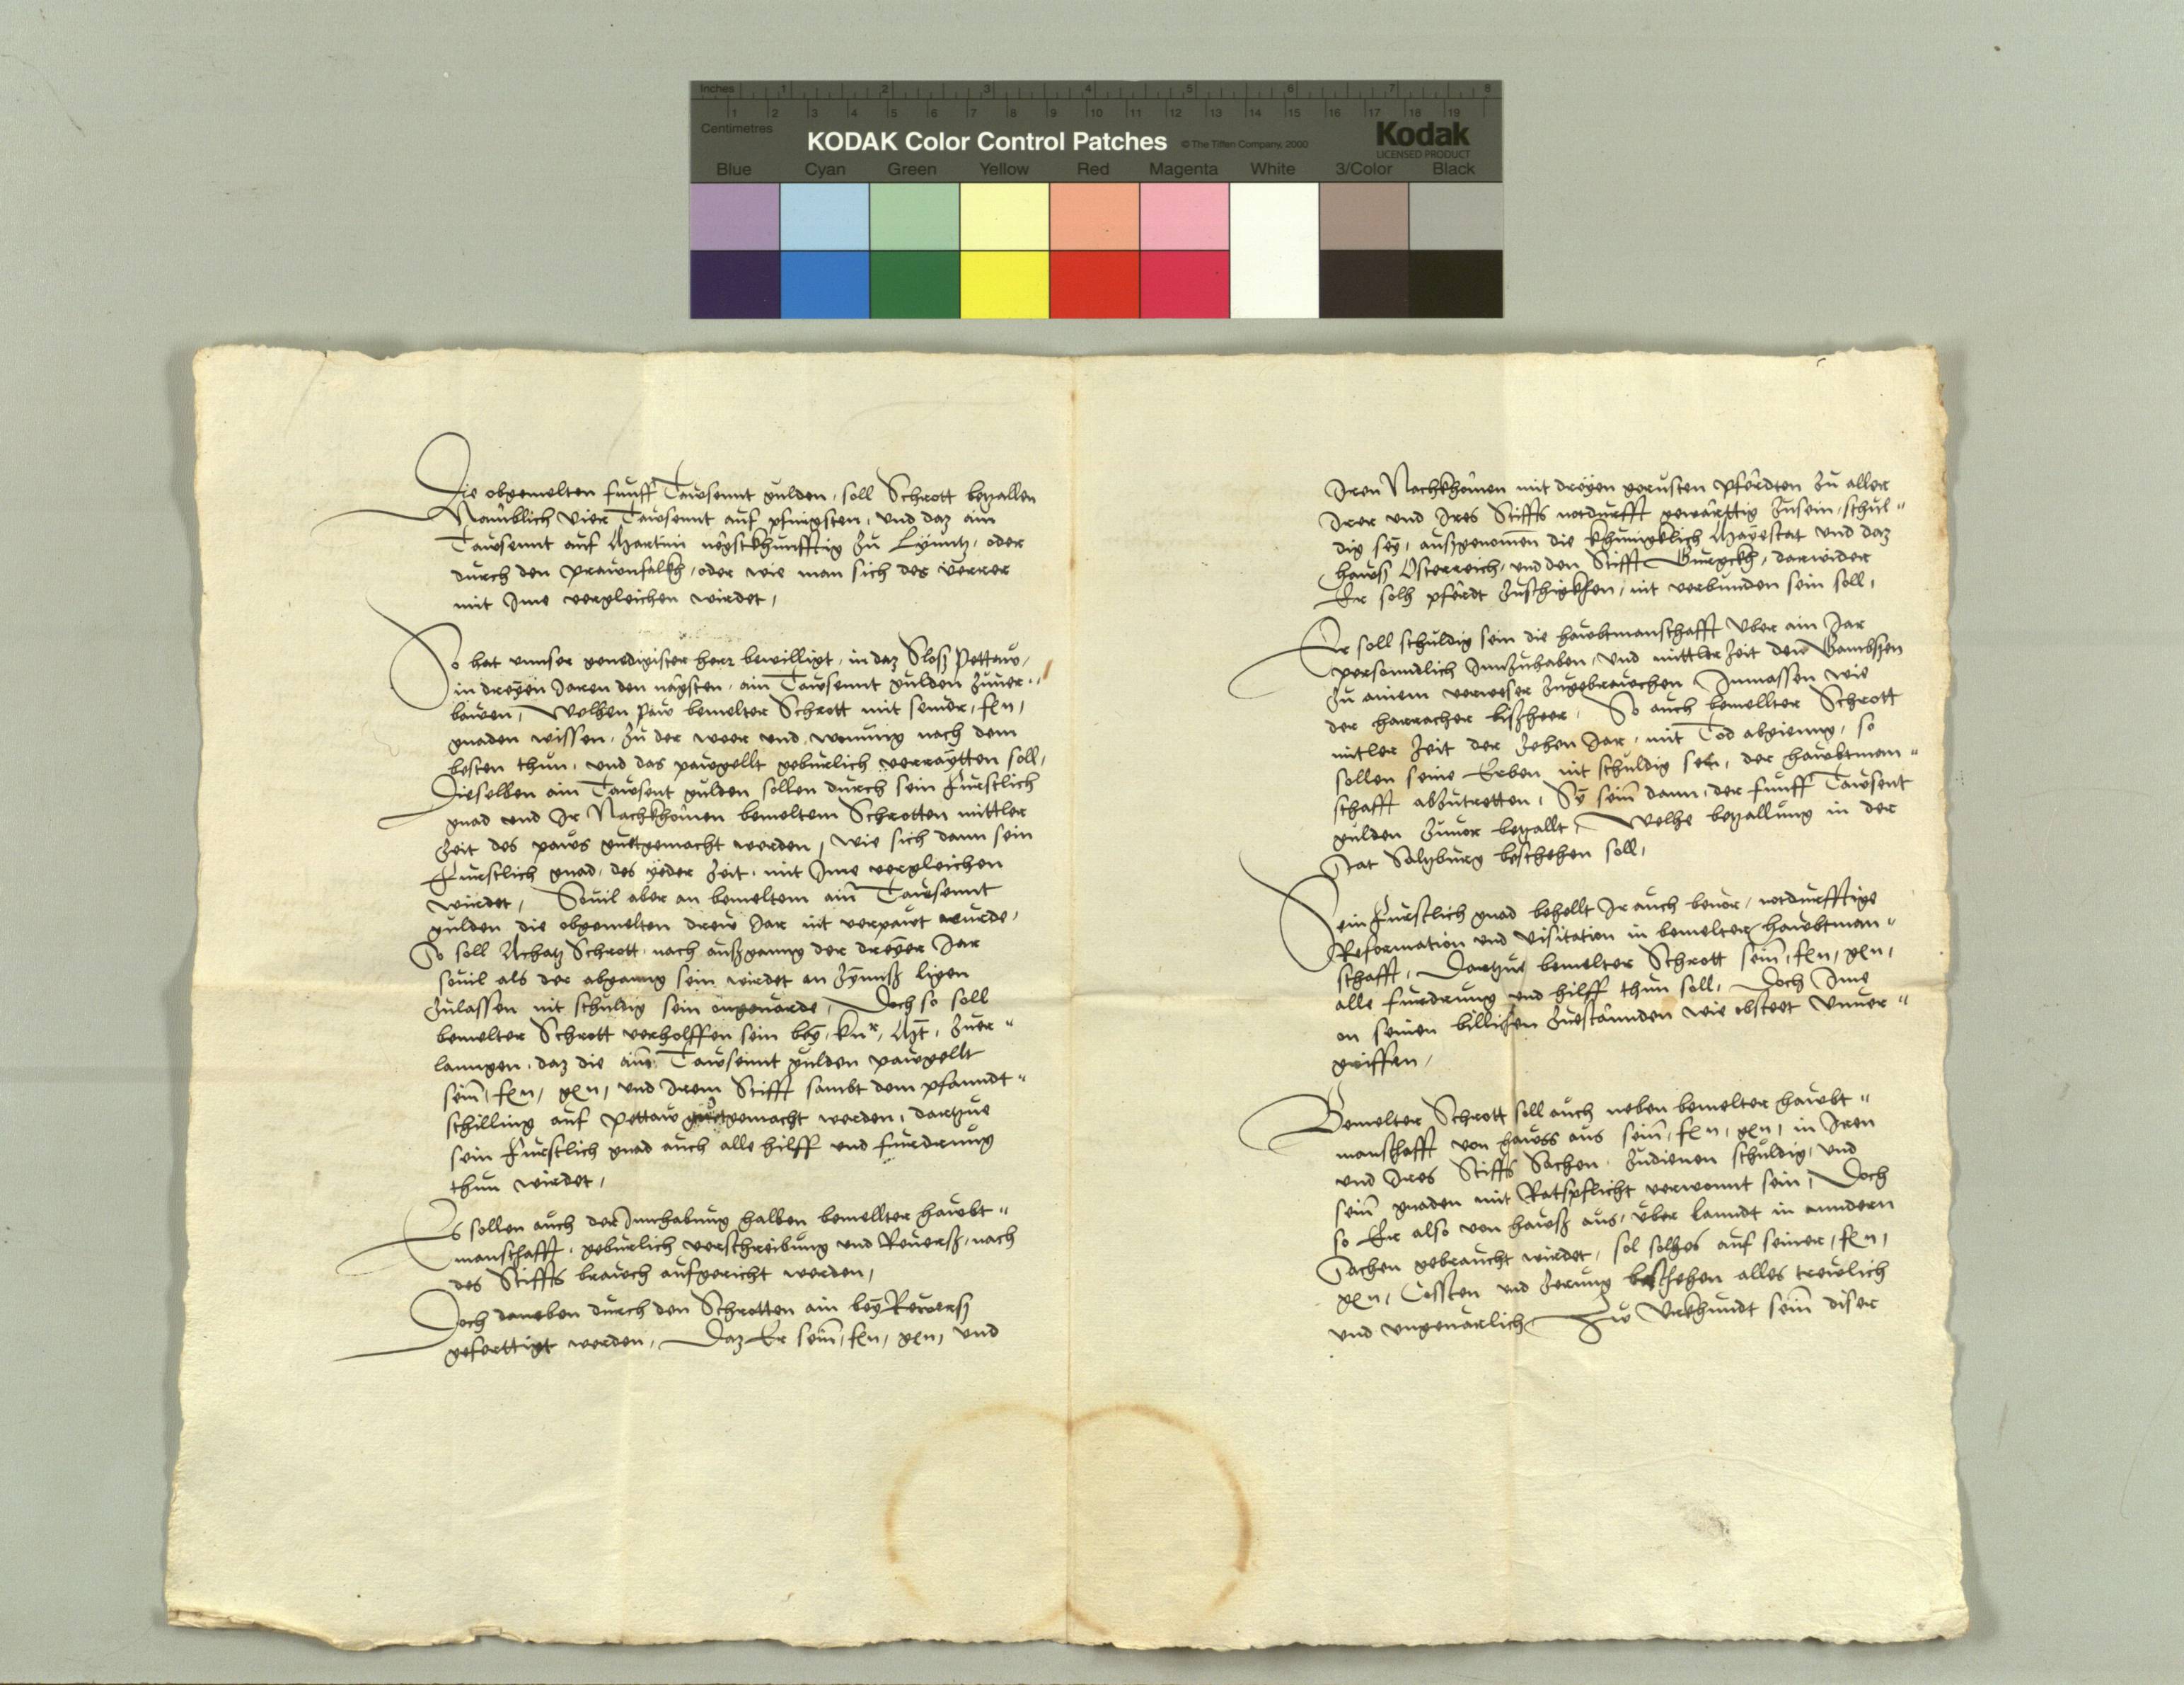 Inches 1 2 3 4 5 6 7 8
1 2 3 4 5 6 7 8 9 10 11 12 13 14 15 16 17 18 19
Centimetres
KODAK Color Control Patches © The Tiffen Company, 2000 Kodak
LICENSED PRODUCT
Blue Cyan Green Yellow Red Magenta White 3/Color Black
Die obgemelten funff Tausennt gulden, soll Schrott betzallen
Namblich vier Tausennt auf pfingsten, und daz ain
Tausennt auf Martini negstkhunfftig zu Lynntz, oder
durch den prawnfalkh, oder wie man sich des verrer
mit Ime vergleichen wirdet,
So hat unnser genedigister herr bewilligt, in daz Sloss Pettaw,
in dreyen Jaren den nagsten, ain Tausennt gulden zuver„
bawen, Welhen paw bemelter Schrott mit seiner, f(e)n,
gnaden wissen, zu der weer und wonung nach dem
besten thun, und das pawgellt geburlich verraytten soll,
Dieselben ain Tausent gulden sollen durch sein Furstlich
gnad und Ir Nachkhomen bemeltem Schrotten mittler
Zeit des paws guetgemacht werden, wie sich dann sein
Furstlich gnad, des yeder Zeit, mit Ime vergleichen
wirdet, Souil aber an bemeltem ain Tausennt
gulden die obgemelten drew Jar nit verpawt wurde,
So soll Achatz Schrott, nach aussganng der dreyer Jar
souil als der abganng sein wirdet an Zynnss ligen
zulassen nit schuldig sein ongeuärde, Doch so soll
bemelter Schrott verholffen sein bey, kur, Mt, zuer„
lanngen, daz die ain Tausennt gulden pawgellt
sein, f(e)n, g(e)n, und Irem Stifft sambt dem pfanndt„
schilling auf Pettaw guetgemacht werden, dartzue
sein Furstlich gnad auch alle hilff und furdrung
thun wirdet,
Es sollen auch der Innhabung halben bemellter haubt„
manschafft, geburlich verschreibung und Reuerss, nach
des Stiffts brauch aufgericht werden,
Doch daneben durch den Schrotten ain bey Reuerss
geferttigt werden, Daz Er sein, f(e)n, g(e)n, und
Iren Nachkhomen mit dreyen gerusten pferdten zu aller
Irer und Ires Stiffts notdurfft gewarttig zusein, schul„
dig sey, aussgenomen die khunigklich Mayestat und daz
hauss Osterreich, und den Stifft Gurgckh, darwider
Er solh pferdt zuschigkhen, nit verbunden sein soll,
Er soll schuldig sein die haubtmanschafft über ain Jar
personndlich Innzuhaben, und mittler Zeit den
zu ainem verweser zugebrauchen Inmassen wie
der harracher bissheer, So auch bemellter Schrott
mitler Zeit der Zehen Jar, mit Tod abgienng, so
sollen seine Erben nit schuldig sein, der haubtman„
schafft abzutretten, Sy sein dann, der funff Tausent
gulden zuuor betzallt, Welhe betzallung in der
Stat Saltzburg beschehen soll,
Sein Furstlich gnad behellt Ir auch beuor, notdurfftige
Reformation und Visitation in bemelter haubtman„
schafft, Dartzue bemelter Schrott sein, f(e)n, g(e)n,
alle furdrung und hilff thun soll, Doch Ime
on seinen billichen zuestännden wie obsteet unuer„
griffen,
Bemelter Schrott soll auch neben bemelter haubt„
manschafft von hauss aus sein, f(e)n, g(e)n, in Iren
und Ires Stiffts Sachen, zudienen schuldig, und
sein gnaden mit Ratspflicht verwonnt sein, Doch
so Er also von hauss aus, über lanndt in anndern
Sachen gebraucht wirdet, sol solhes auf seiner, f(e)n,
g(e)n, Cossten und Zerung beschehen alles trewlich
und ungeuarlich, Zw Urkhundt sein diser